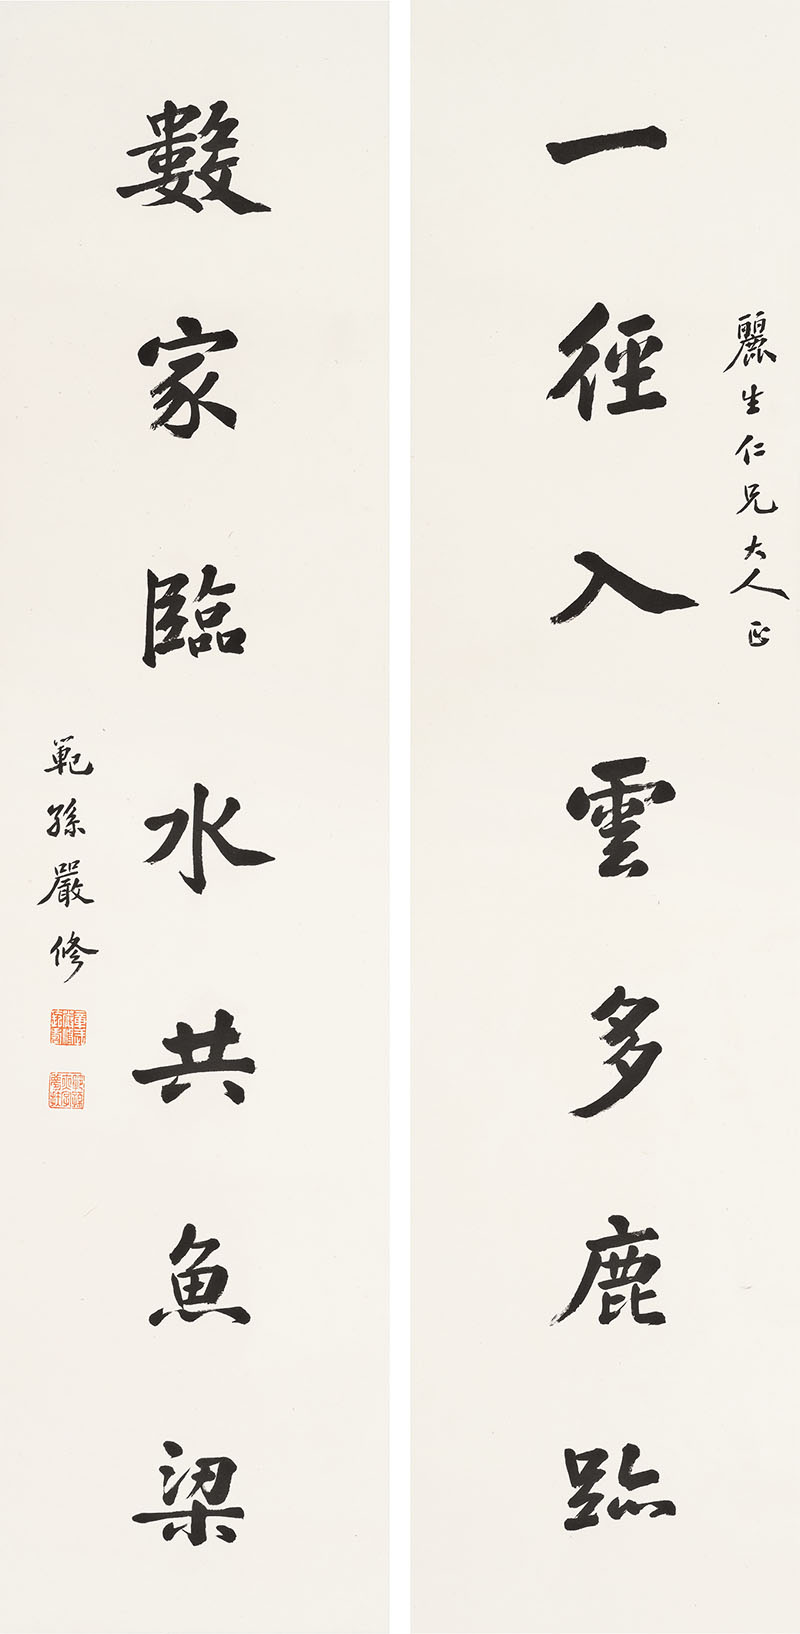 麗生仁兄大人正
一徑入雲多鹿跡
數家臨水共魚梁
範孫嚴修